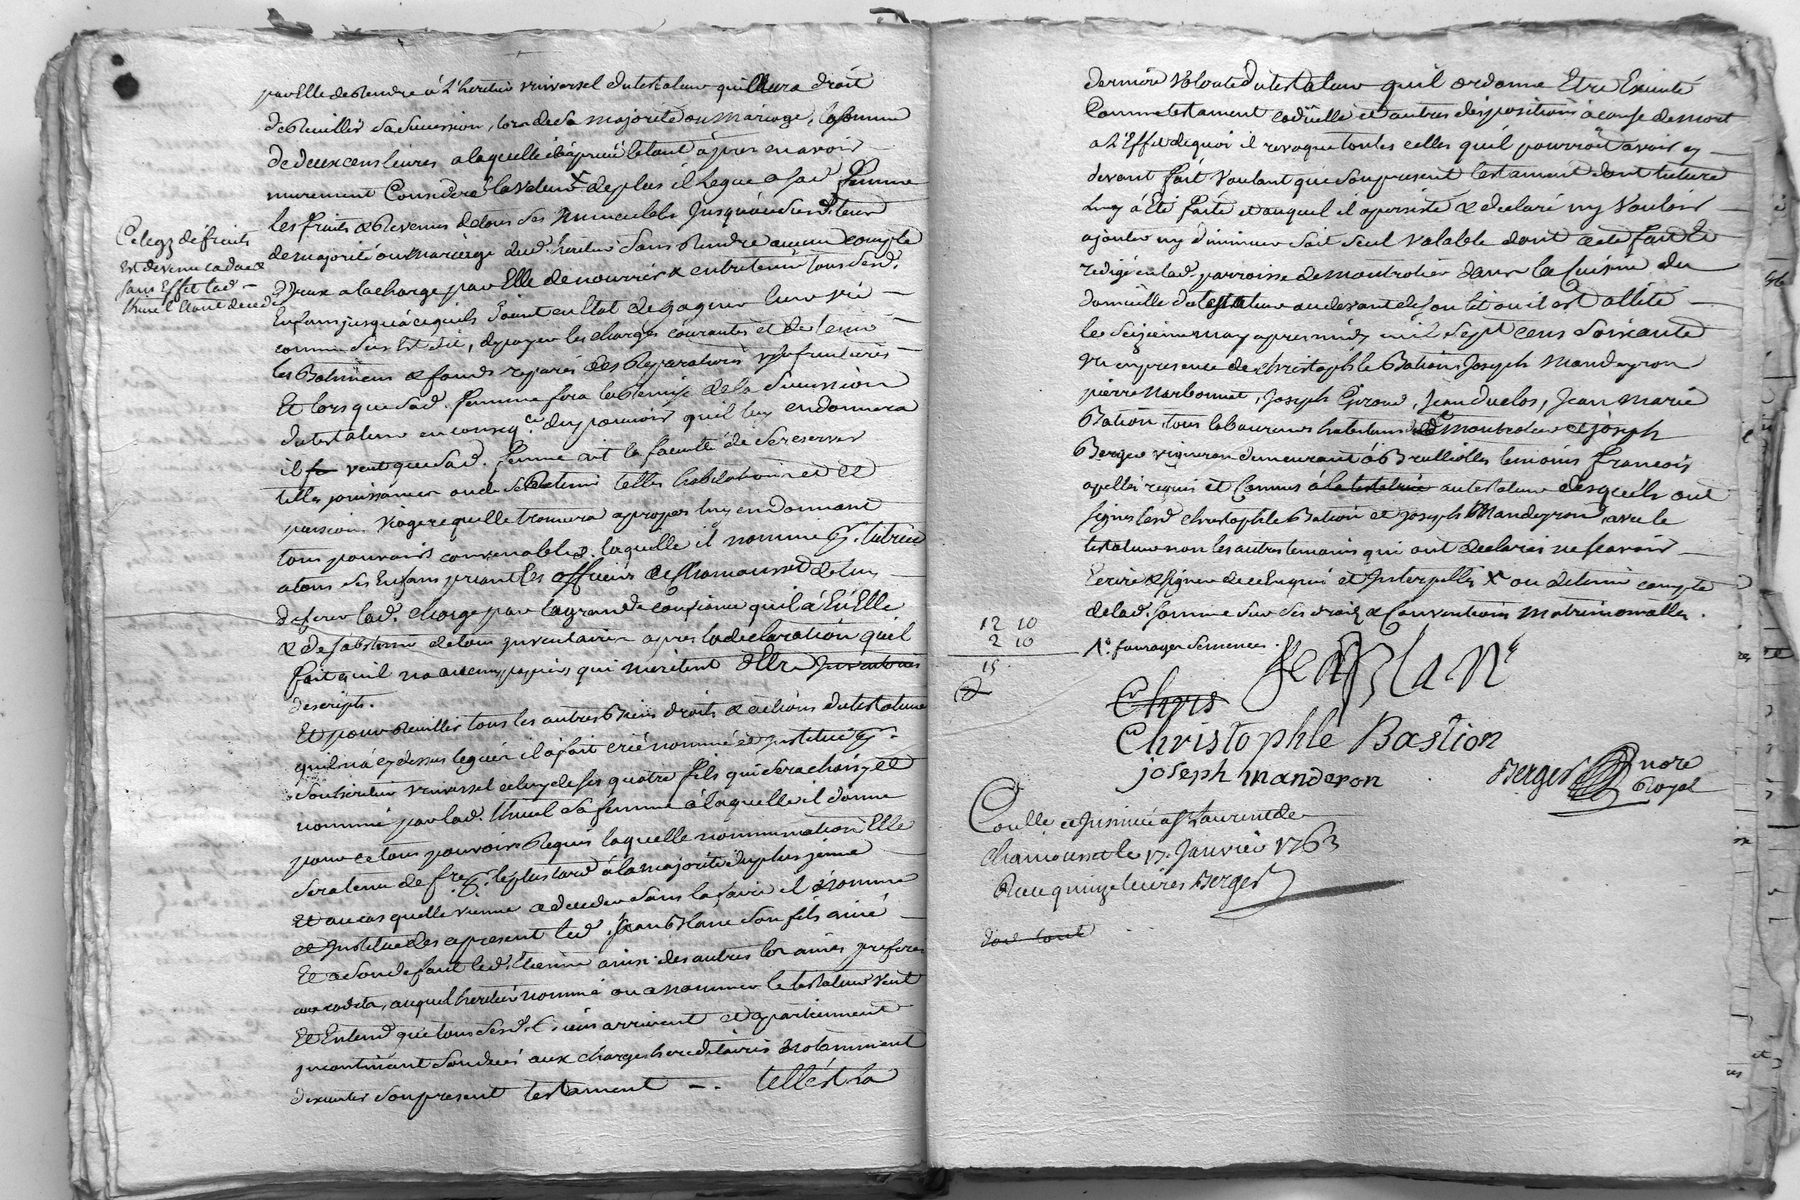 par Elle de Rendre à L'heritier universel du testateur qui aura droit
de Receuillir sa succession, lors de sa majorité ou mariage, la somme
de deux cens livres a laquelle après en avoir
murement Consideré la valeur X de plus il Legue a sad. femme
les fruits & Revenus de tous ses immeubles jusqu'au
de majorité ou mariage dud. heritier sans Rendre aucun compte
a la charge par Elle de nourrir & entretenir tous sesd.
Enfans jusqu'à ce qu'ils soient en Etat de gagner leur vie
comme dessus Est dit, de payer les charges courantes et de tenir
les Batimens & fonds reparés des Reparations usufruitieres
Et lors que sad. femme fera la Remise de la succession
du testateur en conseq.ce du pouvoir qu'il luy en donnera
il veut que sad. femme ait la faculté de se reserver
telles jouissances ou de se Retenir telles habitations et
pension viagere qu'elle trouvera a propos luy en donnant
tous pouvoirs convenables. laquelle il nomme p. tutrice
a tous ses Enfans priant les officiers de Chamousset de luy
deferer lad. charge par la grande confiance qu'il a En Elle
& de s'abstenir de tout inventaire après la declaration qu'il
fait qu'il n'a aucuns papiers qui meritent d'Etre inventoriés
descripts.
Et pour Receuillir tous les autres Biens droits & actions du testateur
qu'il n'a cy dessus legués il a fait créé nommé et institué p.
son heritier universel celuy de ses quatre fils qui sera choisy et
nommé par lad. sa femme à laquelle il donne
pour ce tous pouvoirs Requis laquelle nommination Elle
sera tenu de fre. le plus tard à la majorité du plus jeune
Et au cas qu'elle vienne a deceder sans la faire il nomme
et Institue des apresent led. Jean Blanc son fils ainé
Et a son defaut led. Etienne ainsi des autres les ainés preferés
aux cadets, auquel heritier nommé ou a nommer le testateur veut
Et Entend que tous sesd. biens arrivent et apartiennent
incontinant son decés aux charges hereditaires & notamment
d'executer son present testament — . telle est sa
Ce legs de fruits
est devenu caduc &
sans Effet lad.
étant deced.
derniere Volonté du testateur qu'il ordonne Etre Executé
Comme testament codicille et autres dispositions à cause de mort
a L'Effet de quoi il revoque toutes celles qu'il pourroit avoir cy
devant fait Voulant que son present testament dont lecture
Luy a Eté faite et auquel il a persisté & declaré n'y Vouloir
ajouter ny diminuer soit seul valable dont acte fait et
redigé en lad. parroisse de Montrotier dans la Cuisine du
domicille du testateur au devant de son lit ou il est allité
le seizieme may apres midy mil sept cens soixante
un en presence de christophle Bation Joseph Manderon
pierre Narbonnet, Joseph Giroud, Jean Duclos, Jean Marie
Bation, tous laboureurs habitans dud. Montrotier et joseph
Berger vigneron demeurant à Brullioles temoins francois
apellés requis et Connus à la testatrice au testateur desquels ont
signé lesd. christophle Bation et joseph Manderon avec le
testateur non les autres temoins qui ont declarés ne scavoir
Ecrire & signer de ce Enquis et Interpellés X ou deluy compte
de lad. somme sur ses droits & Conventions Matrimonialles.
1.° fourages semences.
12 10
2 10
15
Jean Blanc
Chris
Christophle Bastion
joseph manderon
Berger nore Royal
Conllé et Insinué a St Laurent de
Chamousset le 17. Janvier 1763
Reçu quinze livres Berger